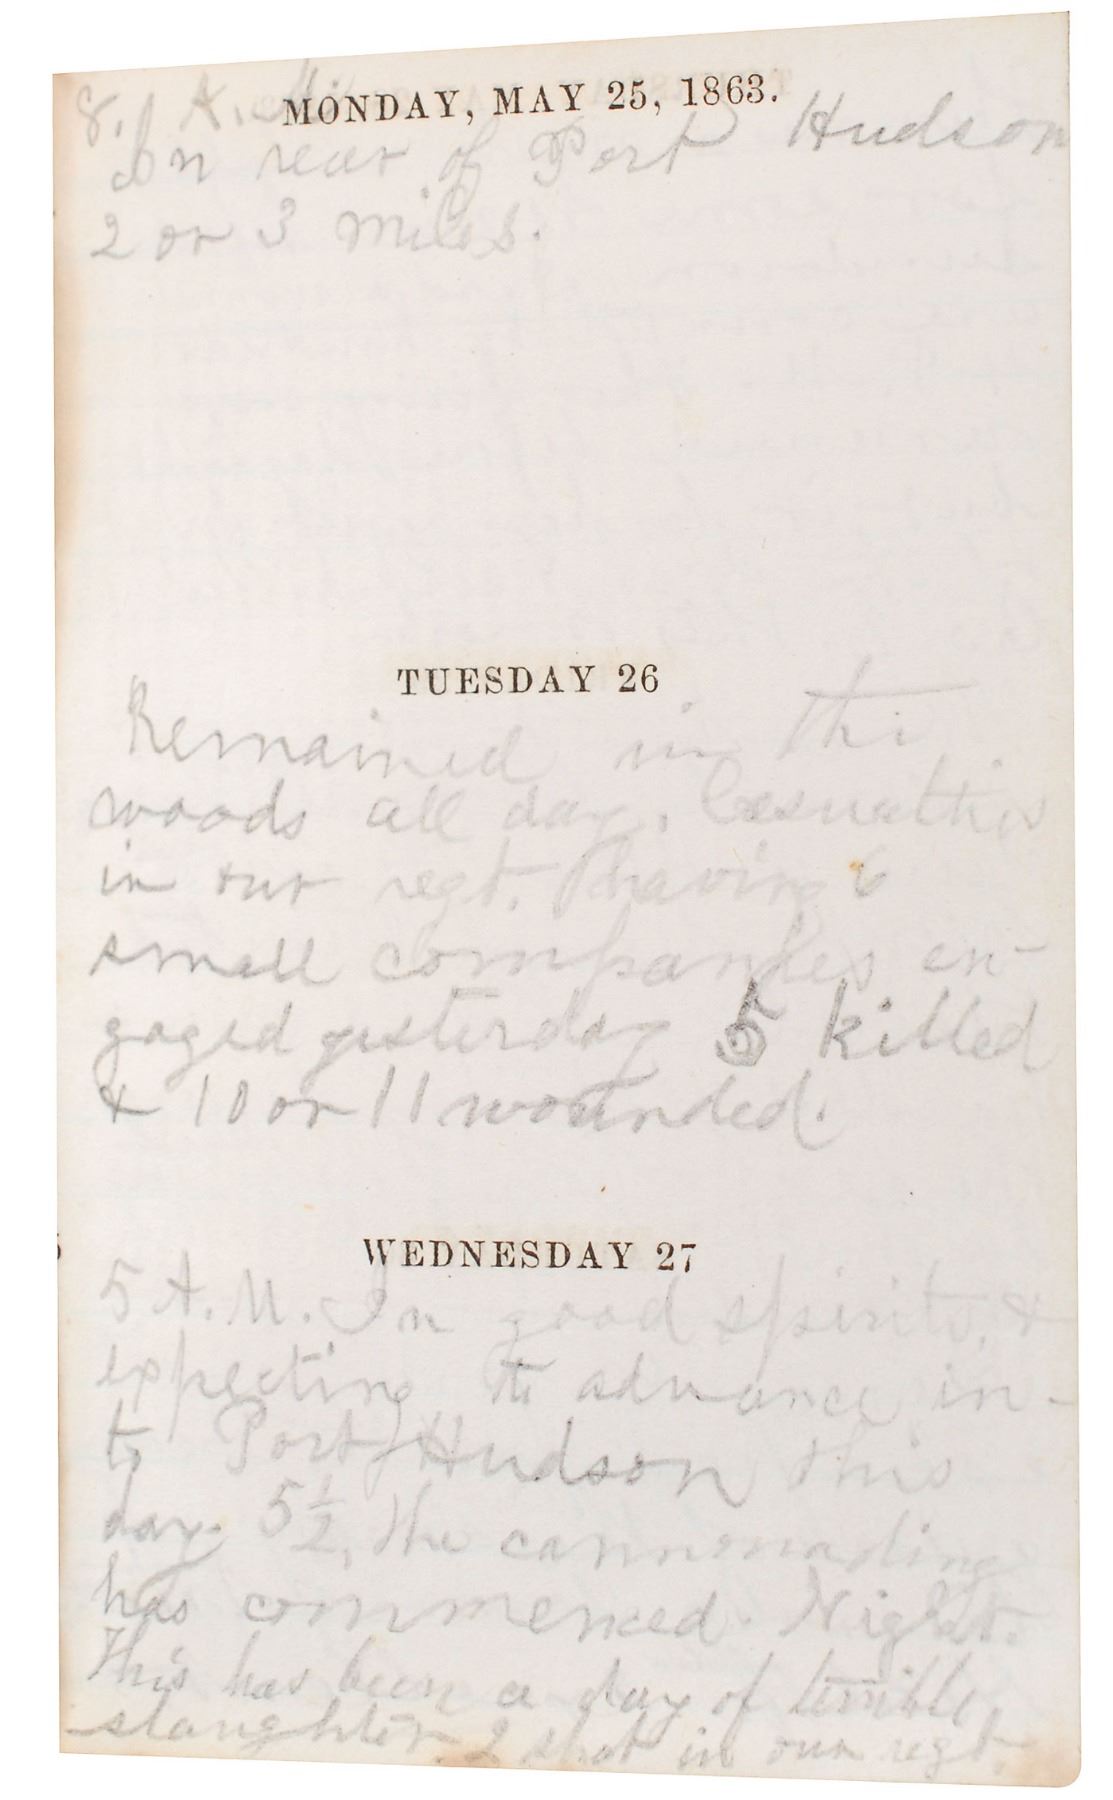 MONDAY, MAY 25, 1863.
8. A. M.
In rear of Port Hudson
2 or 3 miles.
TUESDAY 26
Remained in the
woods all day. Casualties
in our regt. having 6
small companies en-
gaged yesterday 5 killed
& 10 or 11 wounded.
WEDNESDAY 27
5 A. M. In good spirits, &
expecting to advance in-
to Port Hudson this
day. 5½, the cannonading
has commenced. Night.
This has been a day of terrible
slaughter. 2 shot in our regt.